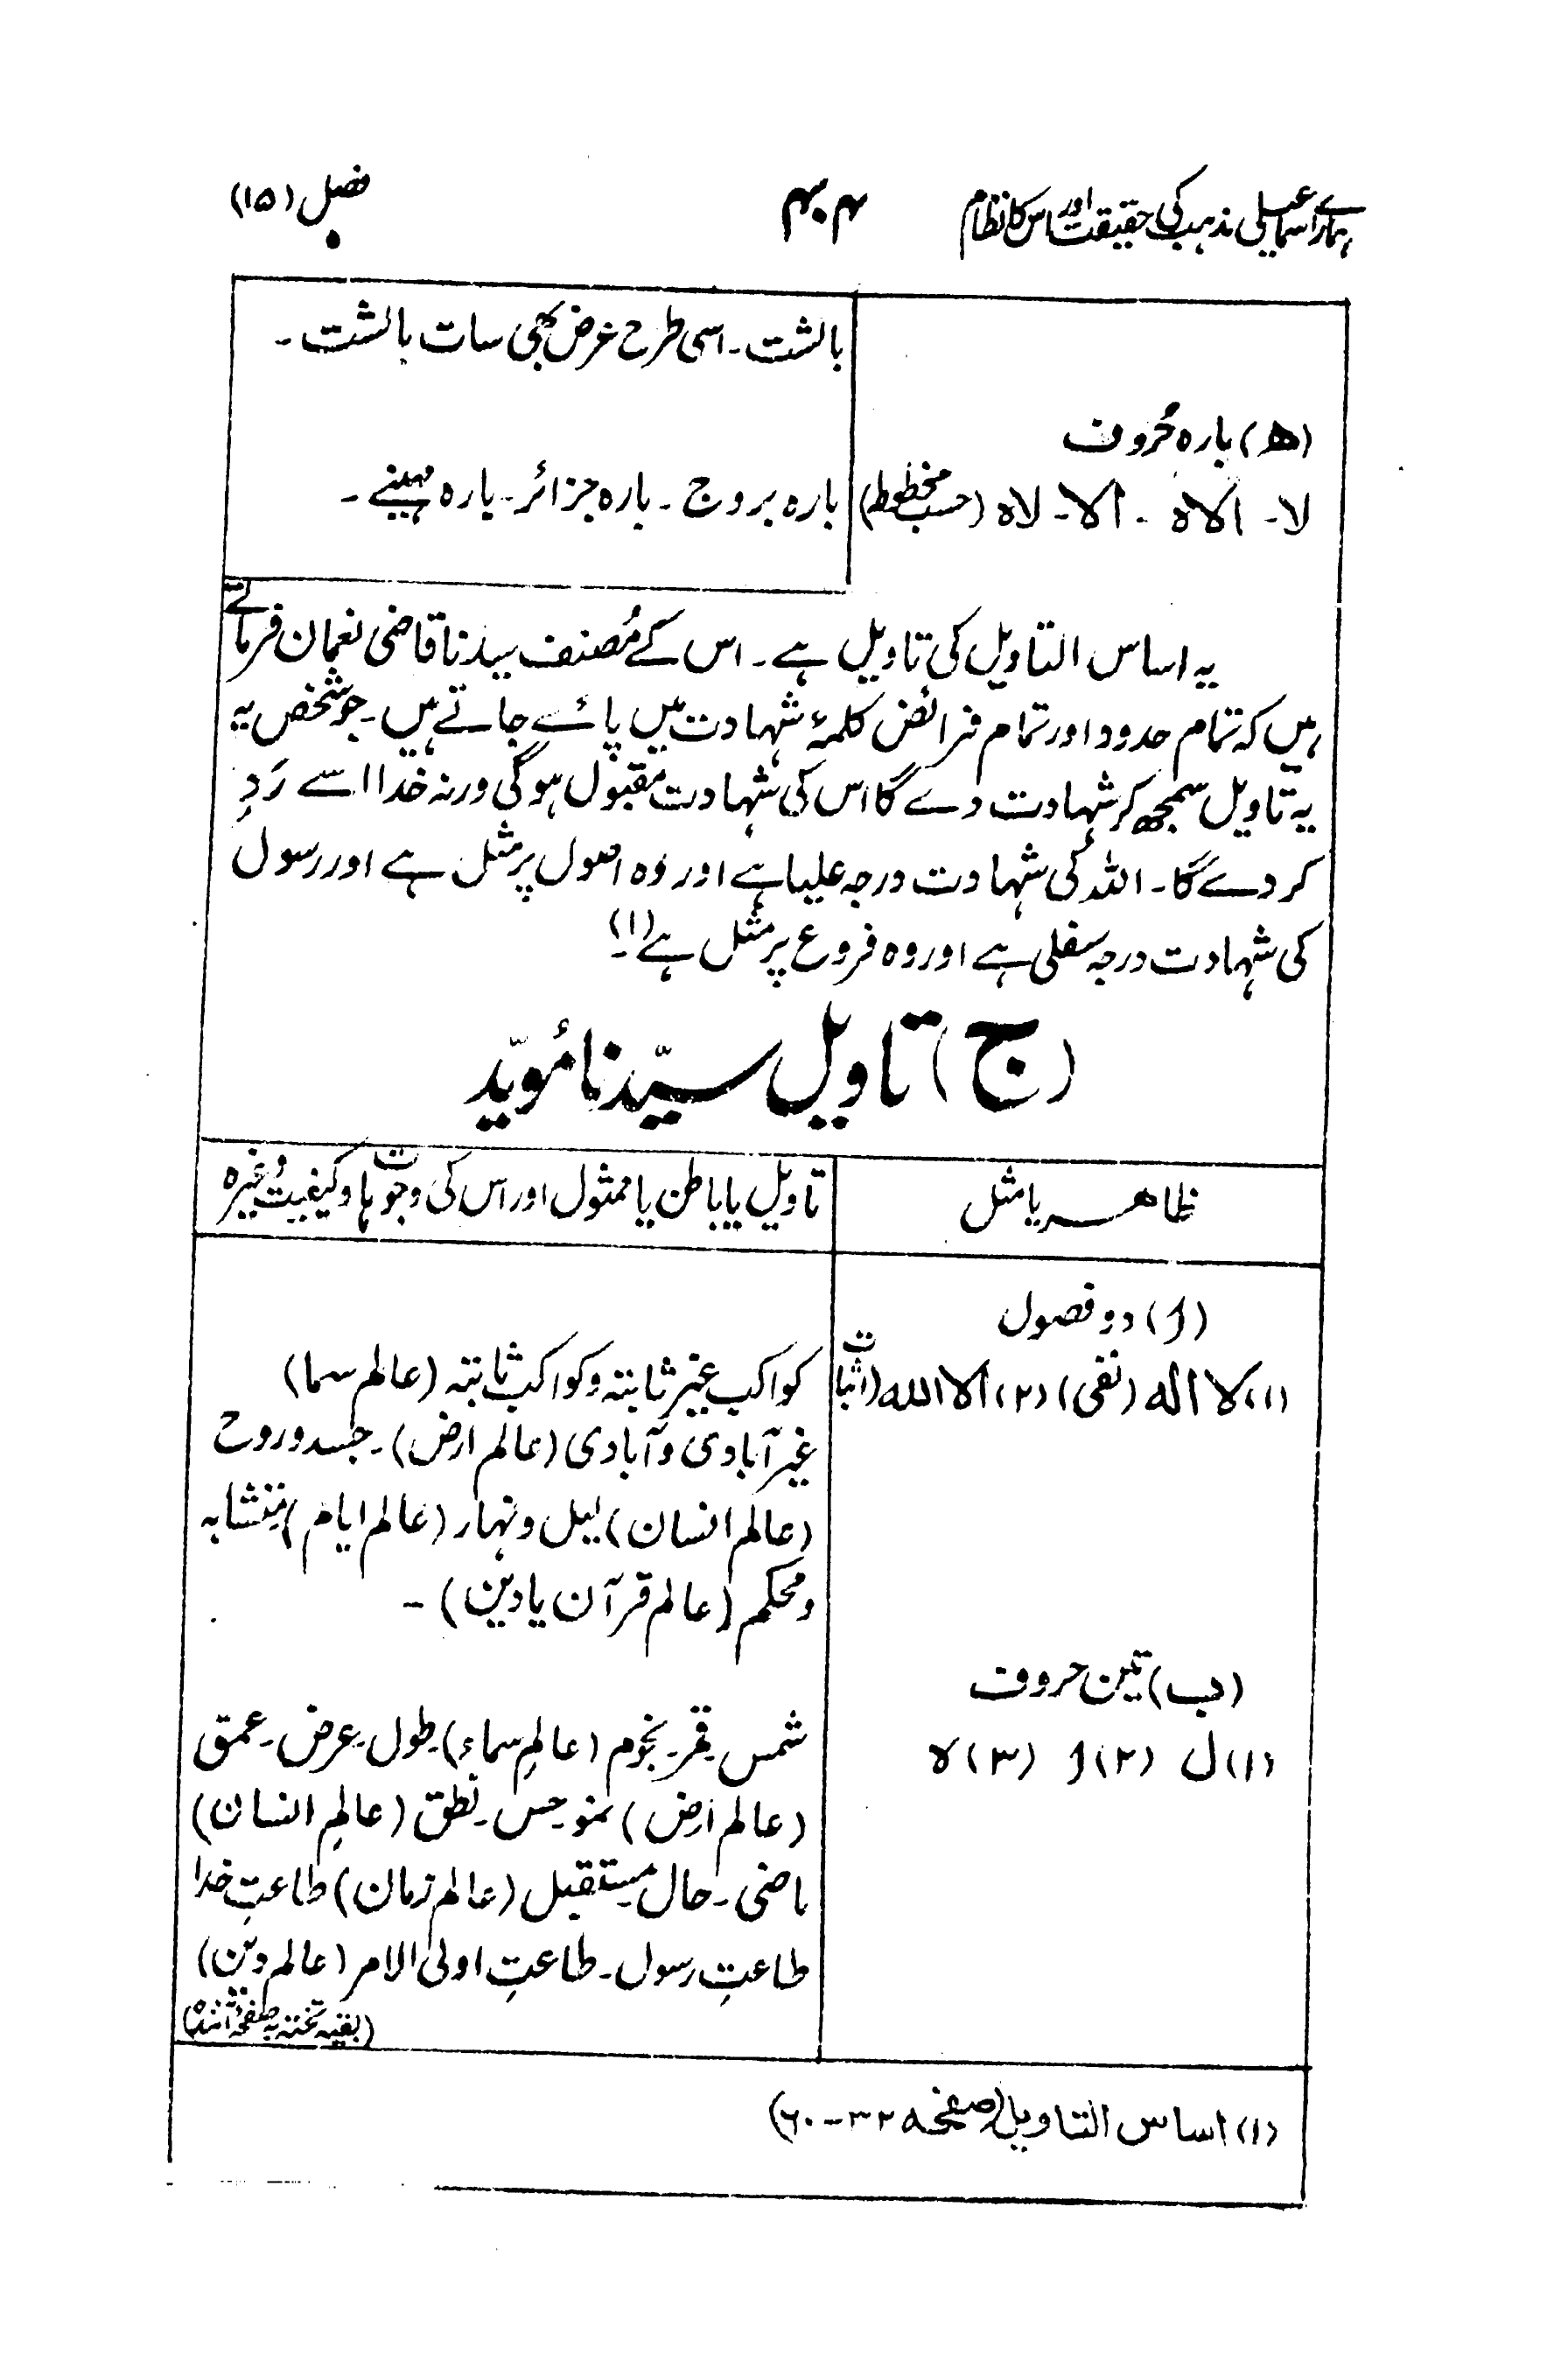 ہمارے اسماعیلی مذہب کی حقیقت اور اس کا نظام
۴۰۴
فصل (۱۵)
بالشت۔ اسی طرح عرض بھی سات بالشت۔
(ھ) بارہ حُروف
لا۔ الاہ ۔ الا۔ لاہ (حسب مخطوط)
بارہ بروج ۔ بارہ جزائر۔ بارہ مہینے ۔
یہ اساس التاویل کی تاویل ہے۔ اس کے مُصنف سیدنا قاضی نعمان فرماتے
ہیں کہ تمام حدود اور تمام فرائض کلمۂ شہادت میں پائے جاتے ہیں۔ جو شخص یہ
یہ تاویل سمجھ کر شہادت دے گا اس کی شہادت مقبول ہوگی ورنہ خدا اسے رَد
کر دے گا۔ اللہ کی شہادت درجہ علیا ہے اور وہ اصول پر مثل ہے اور رسول
کی شہادت درجہ سفلی ہے اور وہ فروع پر مثل ہے (۱)۔
(ج) تاویل سیّدنا مُویّد
ظاھر یا مثل
تاویل یا باطن یا ممثول اور اس کی وجوہات و کیفیت وغیرہ
(ا) دو فصول
(۱) لا الہ (نفی) (۲) الا اللہ (اثبات
کواکب غیر ثابتہ و کواکب ثابتہ (عالم سما)
غیر آبادی و آبادی (عالم ارض)۔ جسد و روح
(عالم انسان) لیل و نہار (عالم ایام) متشابہ
و محکم (عالم قرآن یا دین) ۔
(ب) تین حروف
(۱) ل (۲) ا (۳) ہ
شمس۔ قمر۔ نجوم (عالمِ سماء) طول۔ عرض۔ عمق
(عالم ارض) نمو۔ حس۔ نطق (عالمِ انسان)
ماضی۔ حال۔ مستقبل (عالم زمان) طاعتِ خدا
طاعتِ رسول۔ طاعتِ اولی الامر (عالم دین)
(بقیہ تختہ بہ صفحہ آئندہ)
(۱) اساس التاویل (صفحہ ۳۲ - ۶۰)